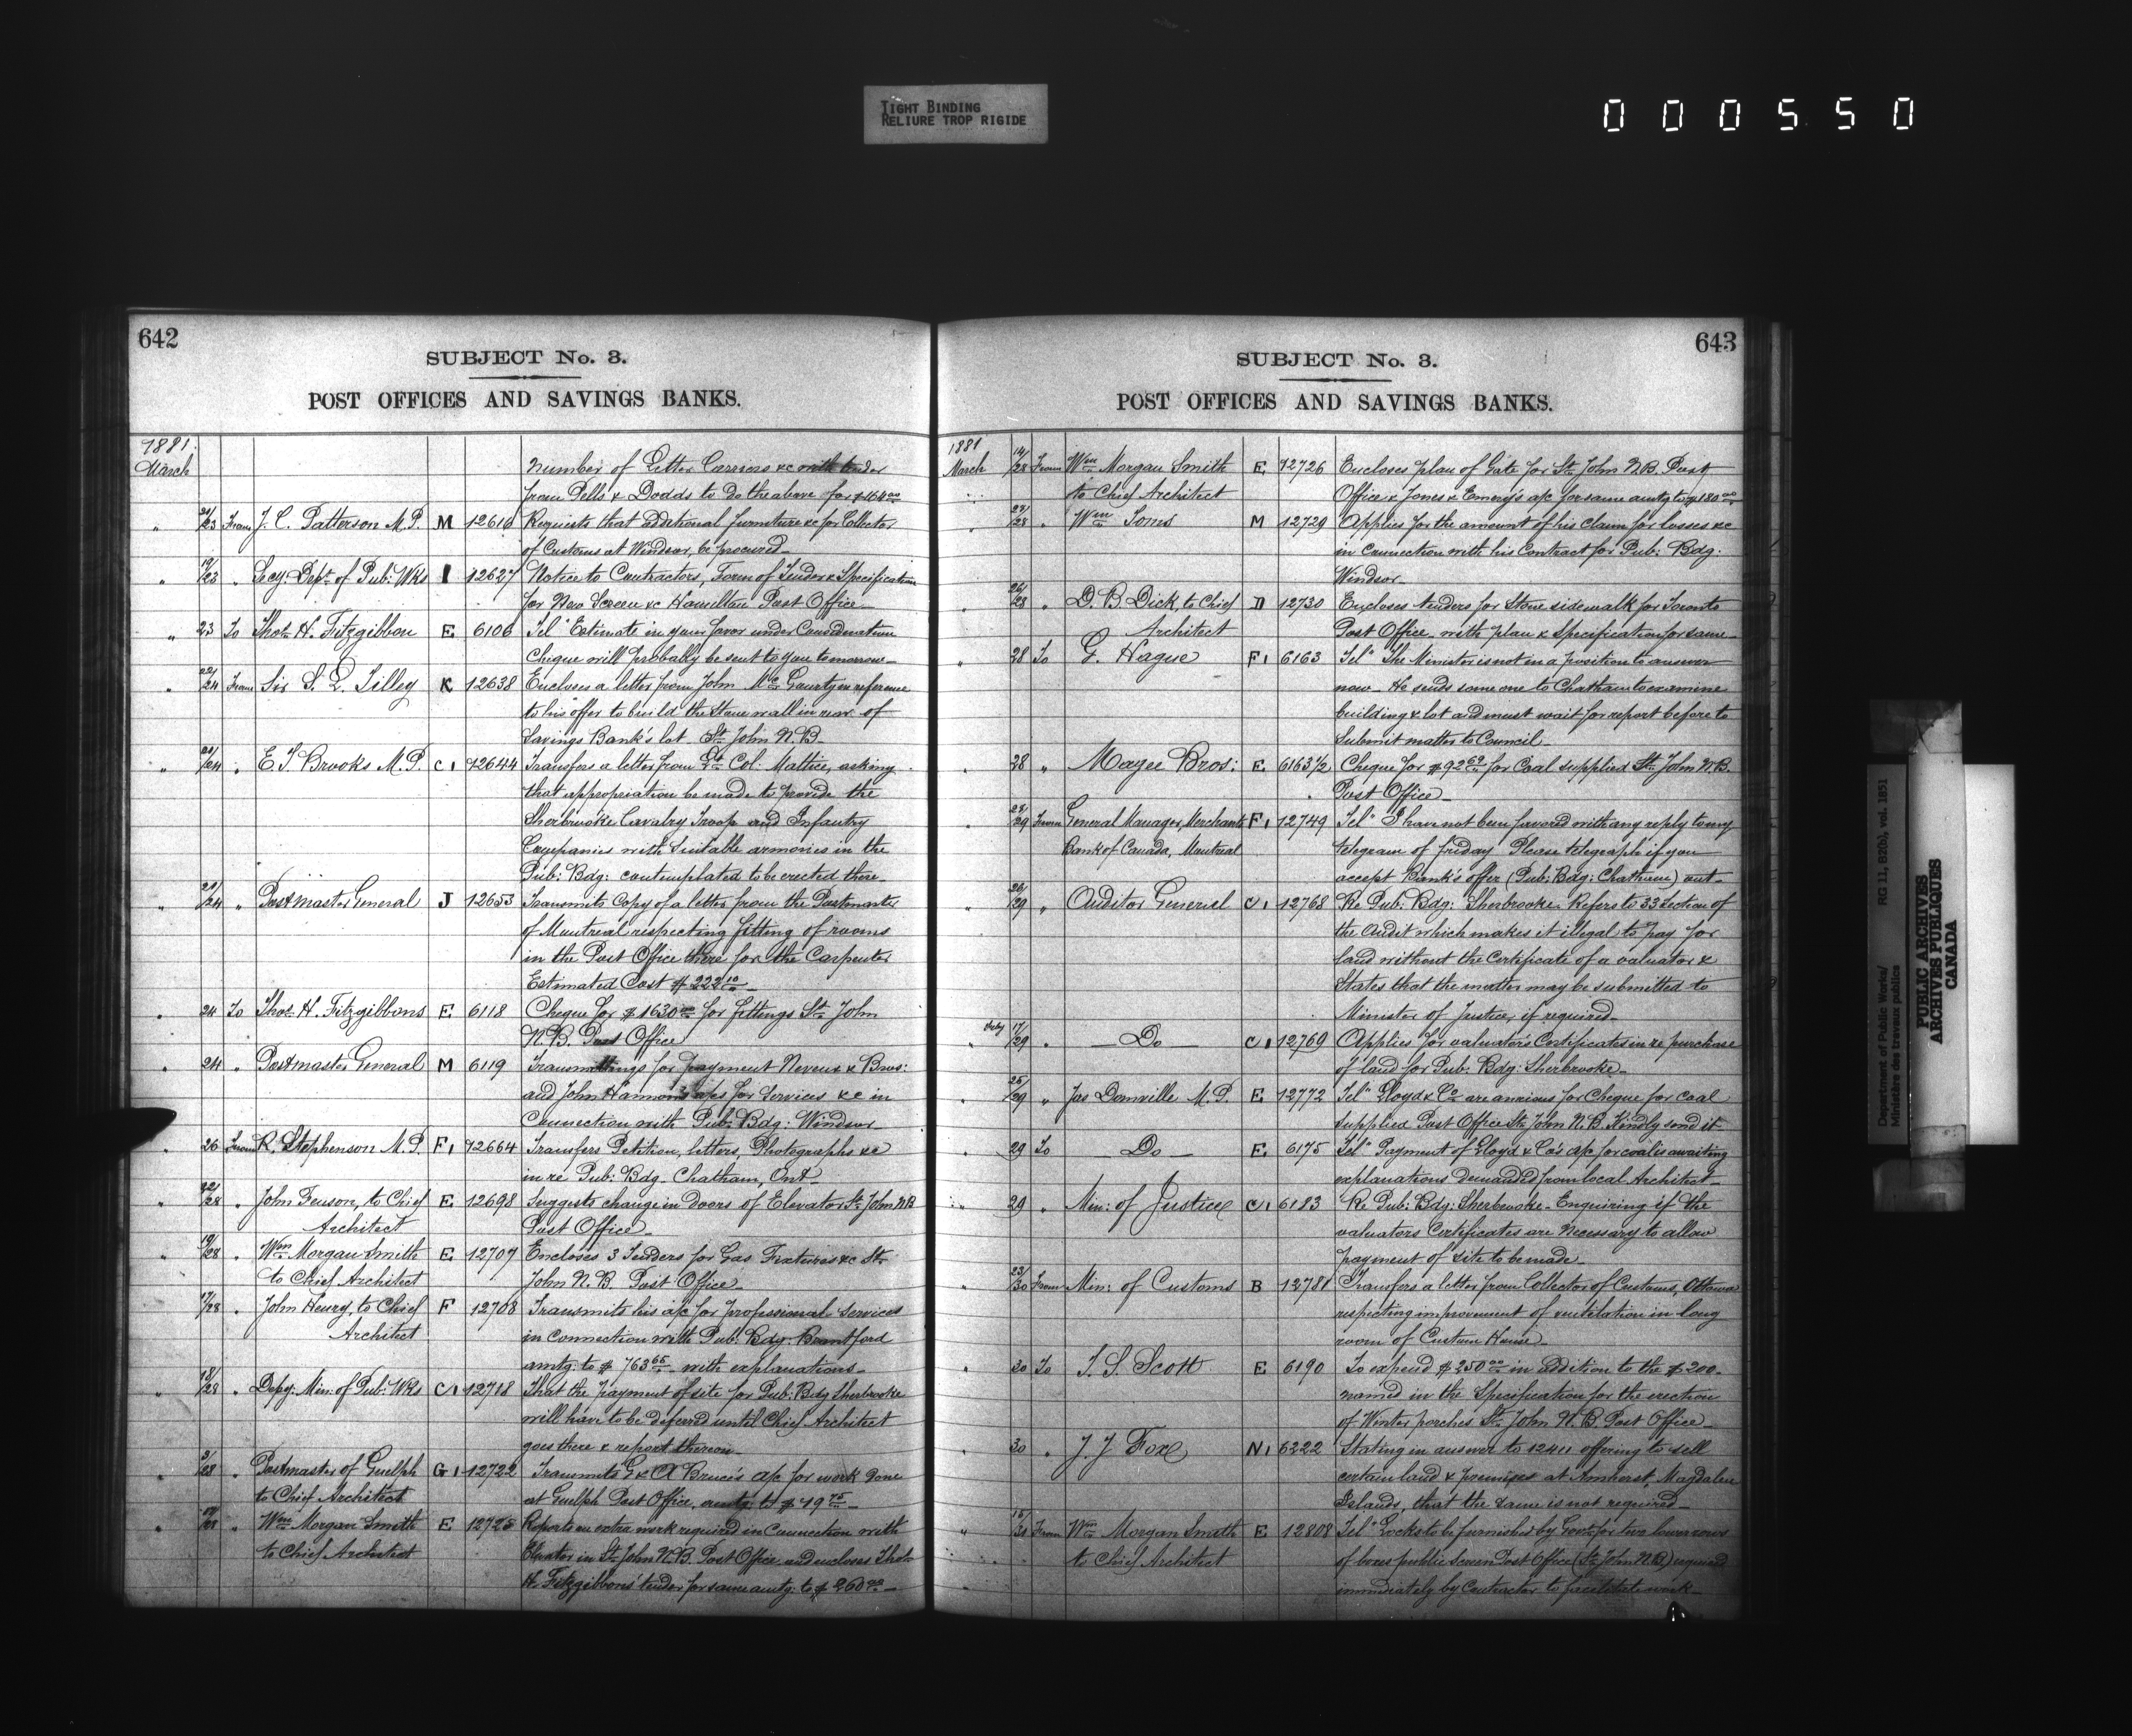 TIGHT BINDING
RELIURE TROP RIGIDE
000550
642
SUBJECT No. 3.
POST OFFICES AND SAVINGS BANKS.
1881.
March Number of Letter Carriers &c with tender
from Pells & Dodds to do the above for $164 00
" 21/23 From J. C. Patterson M.P. M 12616 Requests that additional furniture &c for Collector
of Customs at Windsor, be procured_
" 19/23 " Secy: Dept. of Pub: Wks I 12627 Notice to Contractors, Form of Tender & Specification
for New Screen &c Hamilton Post Office_
" 23 To Thos. H. Fitzgibbon E 6106 Tel" Estimate in your favor under Consideration
Cheque will probably be sent to you tomorrow_
" 22/24 From Sir S. L. Tilley K 12638 Encloses a letter from John McGourty in reference
to his offer to build the Stone wall in rear of
Savings Bank's lot St. John N.B.
" 21/24 " E. T. Brooks M.P. C1 12644 Transfers a letter from Lt. Col: Mattice, asking
that appropriation be made to provide the
Sherbrooke Cavalry Troop and Infantry
Companies with suitable armories in the
Pub: Bdg: contemplated to be erected there_
" 21/24 " Postmaster General J 12653 Transmits Copy of a letter from the Postmaster
of Montreal respecting fitting of rooms
in the Post Office there for the Carpenter
Estimated Cost $222 10_
" 24 To Thos. H. Fitzgibbons E 6118 Cheque for $1630 00 for fittings St. John
N.B. Post Office
" 24 " Postmaster General M 6119 Transmittings for payment Neveux & Bros:
and John Hannon's a/cs for Services &c in
Connection with Pub: Bdg: Windsor
" 26 From R. Stephenson M.P. F1 12664 Transfers Petition, letters, Photographs &c
in re Pub: Bdg_ Chatham, Ont_
" 22/28 " John Fenson, to Chief E 12698 Suggests change in doors of Elevator St. John NB
Architect Post Office_
" 19/28 " Wm Morgan Smith E 12707 Encloses 3 Tenders for Gas Fixtures &c St.
to Chief Architect John N.B. Post Office_
" 17/28 " John Henry, to Chief F 12708 Transmits his a/c for professional Services
Architect in Connection with Pub: Bdg. Brantford
amtg: to $763 65 with explanations_
" 18/28 " Depy: Min: of Pub: Wks C1 12718 That the payment of site for Pub: Bdg Sherbrooke
will have to be deferred until Chief Architect
goes there & report thereon_
" 3/28 " Postmaster of Guelph G1 12722 Transmits G & A Bruce's a/c for work done
to Chief Architect at Guelph Post Office, amtg: to $49 75_
" " Wm Morgan Smith E 12725 Reports on extra work required in Connection with
to Chief Architect Elevator in St. John N.B. Post Office and encloses Thos.
H. Fitzgibbons' tender for same amtg: to $260 00_
643
SUBJECT No. 3.
POST OFFICES AND SAVINGS BANKS.
1881
March 14/28 From Wm Morgan Smith E 12726 Encloses plan of Gate for St. John N.B. Post
to Chief Architect Office & Jones & Emery's a/c for same amtg to $180 00
" 27/28 " Wm M 12729 Applies for the amount of his Claim for losses &c
in Connection with his Contract for Pub: Bdg:
Windsor_
" 26/28 " D. B. Dick, to Chief D 12730 Encloses tenders for Stone sidewalk for Toronto
Architect Post Office_ with plan & Specification for same_
" 28 To G. Hague F1 6163 Tel" The Minister is not in a position to answer
now_ He sends some one to Chatham to examine
building & lot and must wait for report before to
Submit matter to Council_
" 28 " Magee Bros: E 6163½ Cheque for $92 69 for Coal supplied St. John N.B.
Post Office_
" 28/29 From General Manager, Merchants F1 12749 Tel" I have not been favored with any reply to my
Bank of Canada, Montreal telegram of friday Please telegraph if you
accept Bank's offer (Pub: Bdg: Chatham) ont_
" 26/29 " Auditor General C1 12768 Re Pub: Bdg: Sherbrooke. Refers to 33 Section of
the Audit which makes it illegal to pay for
land without the Certificate of a valuator &
States that the matter may be submitted to
Minister of Justice, if required_
" Feby 17/29 " _Do_ C1 12769 Applies for valuator's Certificates in re purchase
of land for Pub: Bdg: Sherbrooke_
" 25/29 " Jas Domville M.P. E 12772 Tel" Lloyd & Co are anxious for Cheque for coal
supplied Post Office St. John N.B. Kindly send it_
" 29 To Do_ E 6175 Tel" Payment of Lloyd & Co's a/c for coal is awaiting
explanations demanded from local Architect_
" 29 " Min: of Justice C1 6183 Re Pub: Bdg: Sherbrooke_ Enquiring if the
valuators Certificates are necessary to allow
payment of site to be made_
" 23/30 From Min: of Customs B 12781 Transfers a letter from Collector of Customs, Ottawa
respecting improvement of ventilation in long
room of Custom House_
" 30 To T. S. Scott E 6190 To expend $250 00 in addition to the $200.
named in the Specification for the erection
of Winter porches St. John N.B. Post Office_
" 30 " J. J. Fox N1 6222 Stating in answer to 12411 offering to sell
certain land & premises at Amherst, Magdalen
Islands, that the same is not required_
" 15/31 From Wm Morgan Smith E 12808 Tel" Locks to be furnished by Govt for two lower rows
to Chief Architect of boxes public Screen Post Office (St. John N.B.) required
immediately by Contractor to facilitate work_
Department of Public Works/ RG 11, B2(b), vol. 1851
Ministère des travaux publics
PUBLIC ARCHIVES
ARCHIVES PUBLIQUES
CANADA